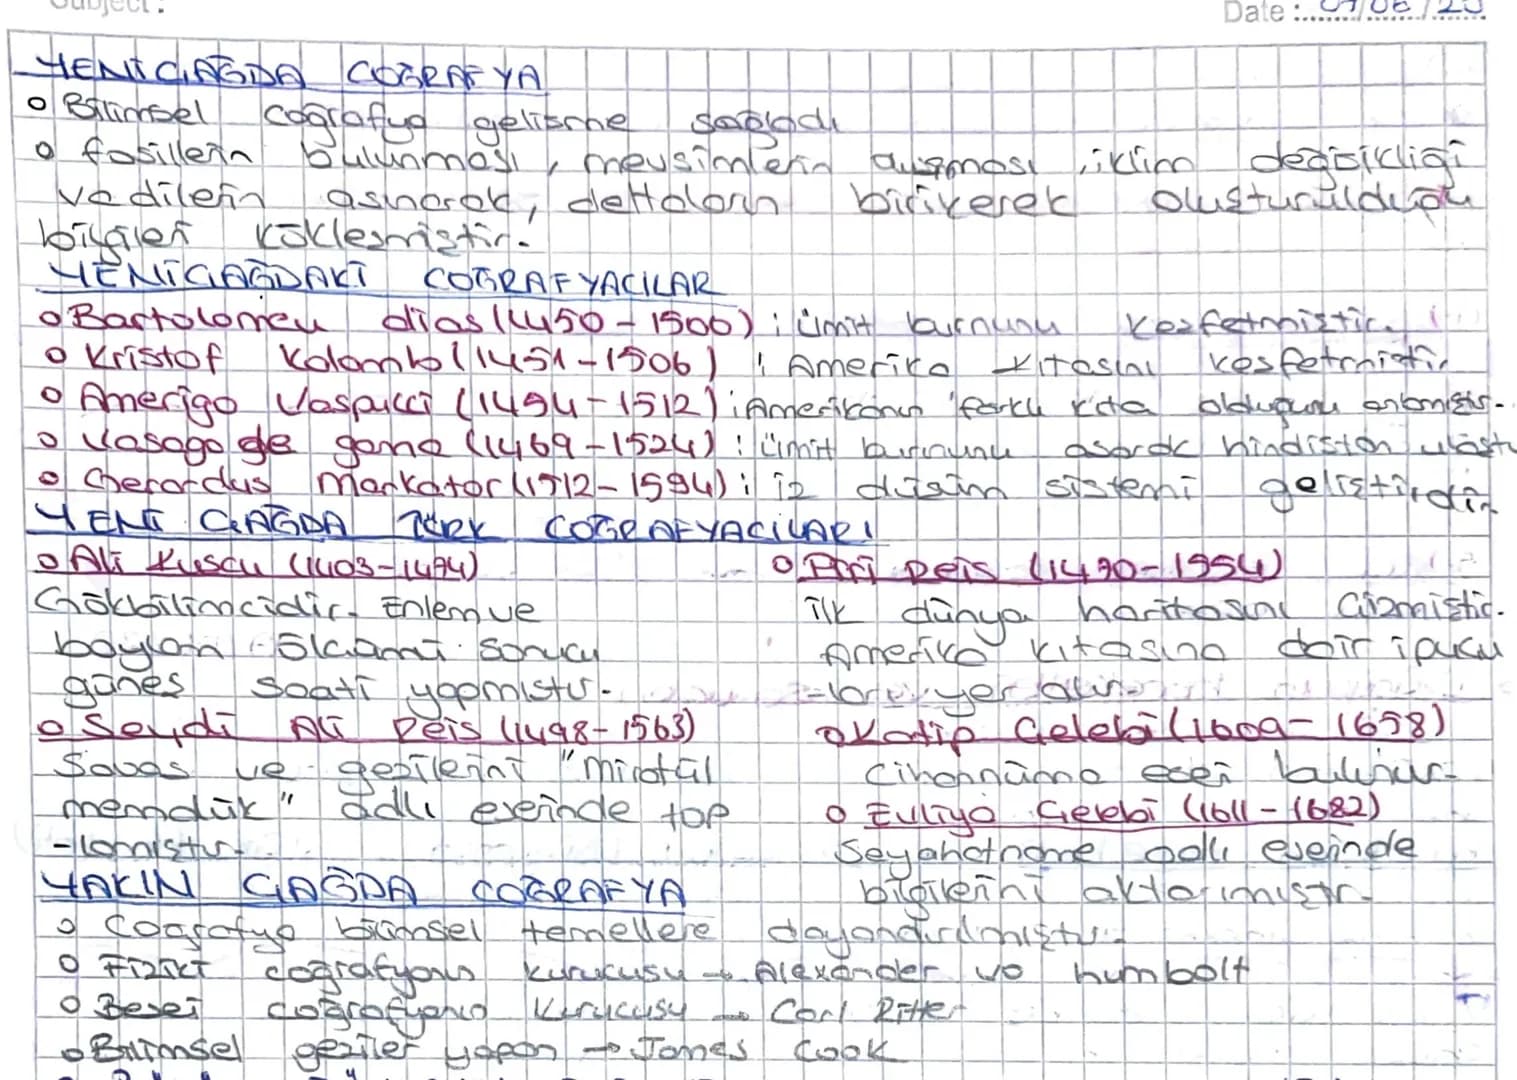 Subject :
Date : 07/06/25
YENİÇAĞDA COĞRAFYA
o Bilimsel coğrafya gelişme sağladı
o fosillerin bulunması, mevsimlerin oluşması, iklim değişikliği
vadilerin aşınarak, deltaların birikerek oluşturulduğu
bilgileri kökleşmiştir.
YENİÇAĞDAKİ COĞRAFYACILAR
o Bartolomeu dias (1450-1500) : Ümit burnunu keşfetmiştir.
o Kristof Kolomb (1451-1506) : Amerika kıtasını keşfetmiştir
o Amerigo Vaspucci (1494-1512) : Amerikanın farklı kıta olduğunu anlamıştır.
o Vasago de gama (1469-1524) : Ümit burnunu aşarak hindistan ulaştı
o Gerardus Markator (1512-1594) : iz düşüm sistemi geliştirdir
YENİ ÇAĞDA TÜRK COĞRAFYACILARI
o Ali Kuşcu (1403-1474)
Gökbilimcidir. Enlem ve
boylam ölçümü sonucu
güneş saati yapmıştır.
o Seydi Ali Reis (1498-1563)
Savaş ve gezilerini "miratül
memalük" adlı eserinde top
-lamıştır.
o Piri Reis (1470-1554)
ilk dünya haritasını çizmiştir.
Amerika kıtasına dair ipucu
-ları yer alır.
o Katip Çelebi (1609-1658)
Cihannüma eseri bulunur.
o Evliya Çelebi (1611-1682)
Seyahatname adlı eserinde
bilgilerini aktarmıştır.
YAKIN ÇAĞDA COĞRAFYA
o Coğrafya bilimsel temellere dayandırılmıştır.
o Fiziki coğrafyanın kurucusu → Alexander vo humbolt
o Beşeri coğrafyanın kurucusu → Carl Ritter
o Bilimsel geziler yapan → James Cook